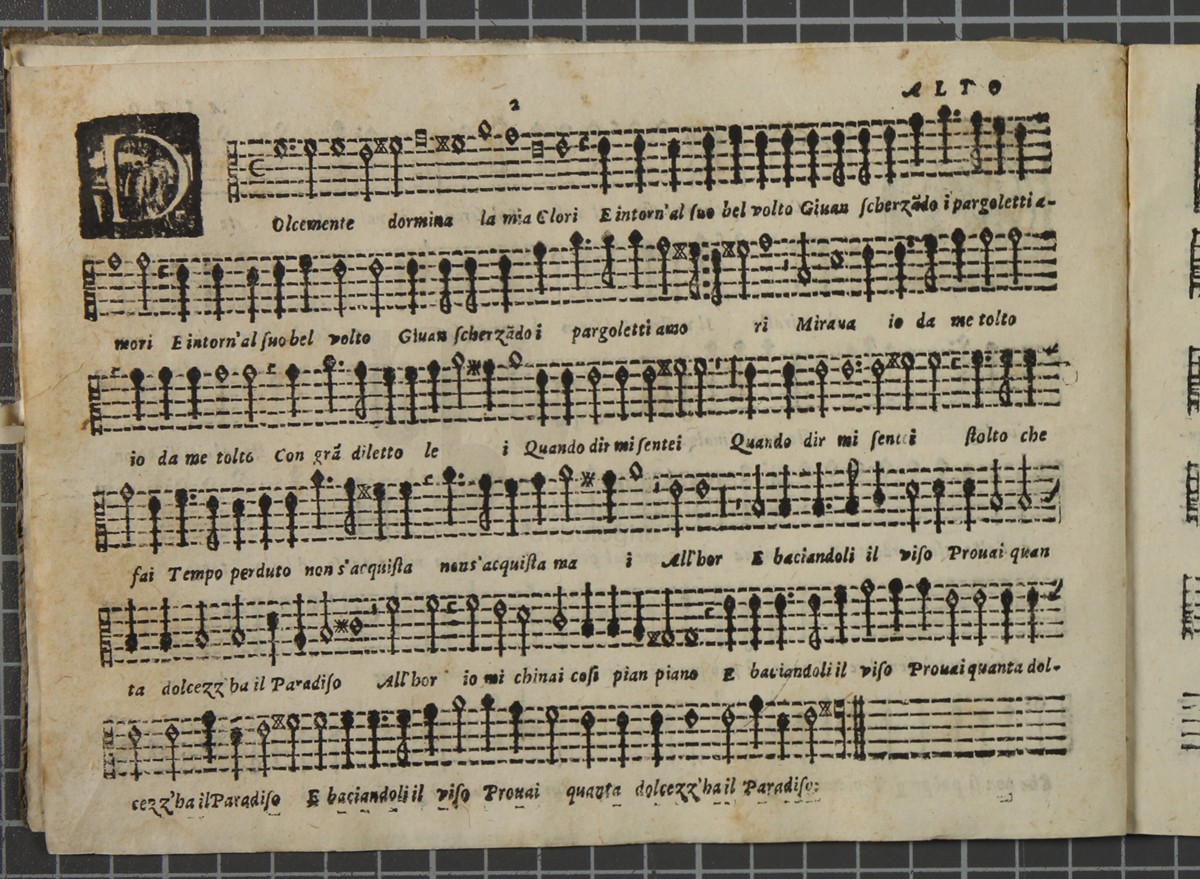 ALTO
2
DOlcemente dormiua la mia Clori E intorn'al suo bel volto Giuan scherzãdo i pargoletti a-
mori E intorn'al suo bel volto Giuan scherzãdo i pargoletti amo ri Miraua io da me tolto
io da me tolto Con grã diletto le i Quando dir mi sentei Quando dir mi sentei stolto che
fai Tempo perduto non s'acquista non s'acquista ma i All'hor E baciandoli il viso Prouai quan
ta dolcezz'ha il Paradiso All'hor io mi chinai cosi pian piano E baciandoli il viso Prouai quanta dol-
cezz'ha il Paradiso E baciandoli il viso Prouai quanta dolcezz'ha il Paradiso: